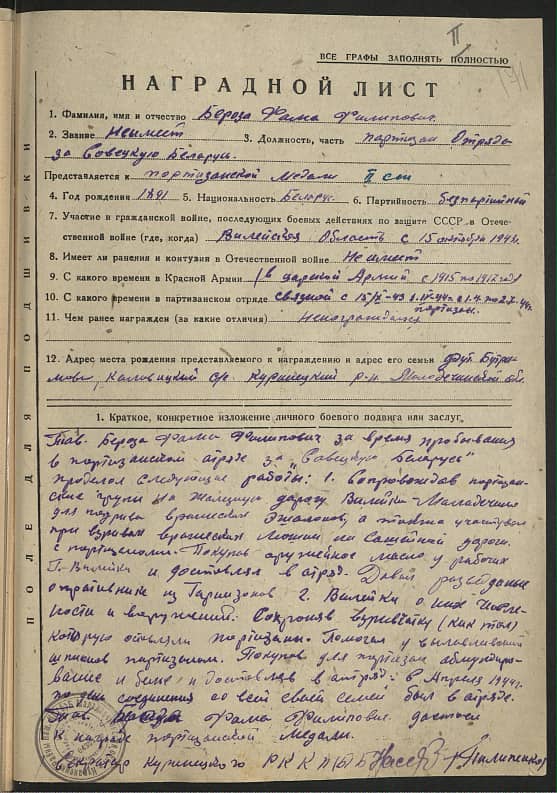 II
ВСЕ ГРАФЫ ЗАПОЛНЯТЬ ПОЛНОСТЬЮ
НАГРАДНОЙ ЛИСТ
1. Фамилия, имя и отчество Бероза Фама Филипович
2. Звание Неимеет 3. Должность, часть партизан Отряда
за Совецкую Беларусь.
Представляется к партизанской медали II сте
4. Год рождения 1891 5. Национальность Белорус. 6. Партийность безпартийный
7. Участие в гражданской войне, последующих боевых действиях по защите СССР в Отече-
ственной войне (где, когда) Вилейская Область с 15 октября 1943г.
8. Имеет ли ранения и контузия в Отечественной войне Не имеет
9. С какого времени в Красной Армии (в царской Армий с 1915 по 1917 года
10. С какого времени в партизанском отряде связной с 15/X-43 1.IV-44г. с 1.4. по 2.7.44г.
партизан.
11. Чем ранее награжден (за какие отличия) Ненаграждался
12. Адрес места рождения представляемого к награждению и адрес его семьи
Куринецкий р-н Молодечинской обл.
1. Краткое, конкретное изложение личного боевого подвига или заслуг.
Тов. Бероза Фама Филипович за время пробывания
в партизанской отряде за "Совецкую Беларусь"
проделал следующие работы: 1. Сопровождав партизан-
ские групы на жилезную дорогу Вилейка-Маладечино
для подрыва врагиеских эшалонов, а также участвувал
при взрывах врагиеских машин на дороги
с партизанами. Покупав оружейное масло у рабочих
Г-Вилейки и доставлял в атряд. Давал разведданые
опративные из Гарнизонов г. Вилейки о их числе-
ности и воружений. Сохроняв взривчатку (как тол)
которую оставляли партизаны. Помогал у вылавливаний
шпионов партизаном. Покупав для партизан абмундиро-
вание и белье и доставляв в атряд: с Апреля 1944г.
по день соединения со всей своей семьей был в атряде.
Тов. Бероза Фама Филипович достоен
к награде партизанской медали.
Секретар Куринецкого Р К К П /б/ Б
ПОЛЕ ДЛЯ ПОДШИВКИ